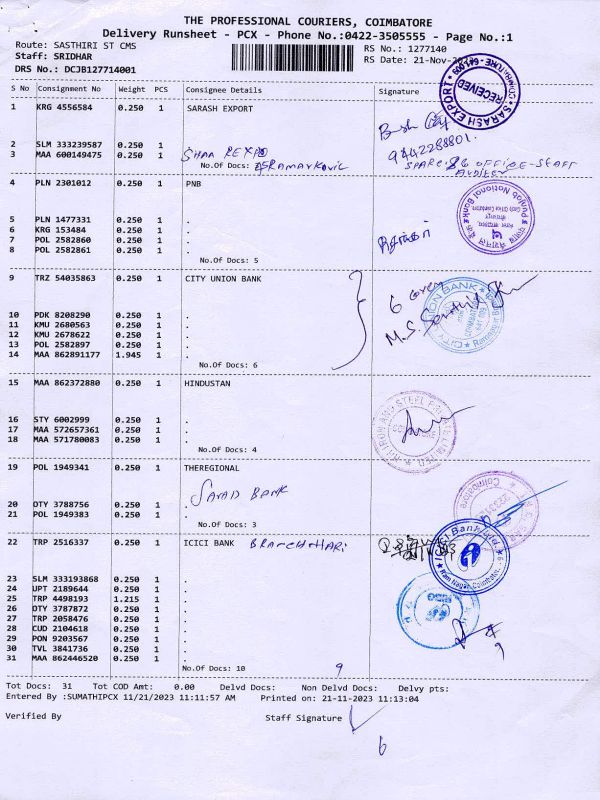 THE PROFESSIONAL COURIERS, COIMBATORE
Delivery Runsheet - PCX - Phone No.:0422-3505555 - Page No.:1
Route: SASTHIRI ST CMS RS No.: 1277140
Staff: SRIDHAR RS Date: 21-Nov-
DRS No.: DCJB127714001
S No Consignment No Weight PCS Consignee Details Signature
1 KRG 4556584 0.250 1 SARASH EXPORT
SARASH EXPORT RECEIVED
9442288801.
2 SLM 333239587 0.250 1 .
3 MAA 600149475 0.250 1
No.Of Docs:
OFFICE-STAFF
4 PLN 2301012 0.250 1 PNB
Punjab National Bank
5 PLN 1477331 0.250 1 .
6 KRG 153484 0.250 1 .
7 POL 2582860 0.250 1 .
8 POL 2582861 0.250 1 .
No.Of Docs: 5
9 TRZ 54035863 0.250 1 CITY UNION BANK
CITY UNION BANK
10 PDK 8208290 0.250 1 .
11 KMU 2680563 0.250 1 .
12 KMU 2678622 0.250 1 .
13 POL 2582897 0.250 1 .
14 MAA 862891177 1.945 1 .
No.Of Docs: 6
15 MAA 862372880 0.250 1 HINDUSTAN
16 STY 6002999 0.250 1 .
17 MAA 572657361 0.250 1 .
18 MAA 571780083 0.250 1 .
No.Of Docs: 4
19 POL 1949341 0.250 1 THEREGIONAL
BANK
Coimbatore
20 OTY 3788756 0.250 1 .
21 POL 1949383 0.250 1 .
No.Of Docs: 3
22 TRP 2516337 0.250 1 ICICI BANK
ICICI Bank Ltd
Ram Nagar, Coimbatore
23 SLM 333193868 0.250 1 .
24 UPT 2189644 0.250 1 .
25 TRT 4498193 1.215 1 .
26 OTY 3787872 0.250 1 .
27 TRP 2058476 0.250 1 .
28 CUD 2104618 0.250 1 .
29 PON 9203567 0.250 1 .
30 TVL 3841736 0.250 1 .
31 MAA 862446520 0.250 1 .
No.Of Docs: 10 9
9
Tot Docs: 31 Tot COD Amt: 0.00 Delvd Docs: Non Delvd Docs: Delvy pts:
Entered By :SUMATHIPCX 11/21/2023 11:11:57 AM Printed on: 21-11-2023 11:13:04
Verified By Staff Signature
6